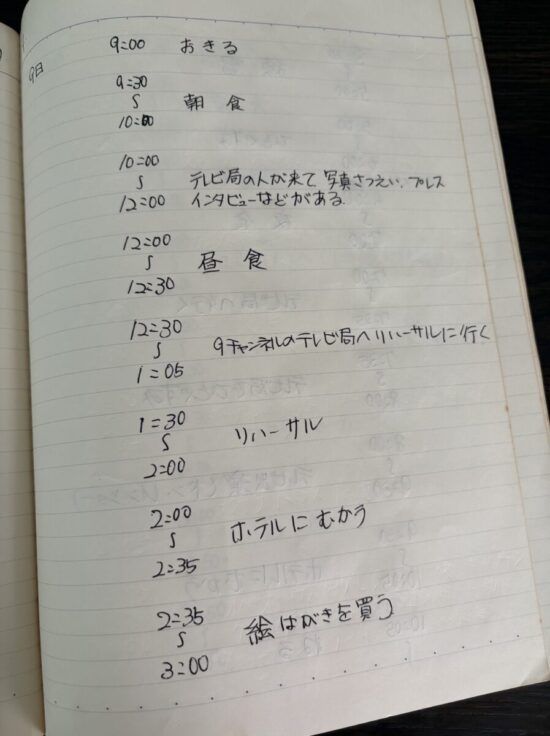 9日
9:00 おきる
9:30
〜 朝食
10:00
10:00
〜 テレビ局の人が来て写真さつえい、プレス
12:00 インタビューなどがある。
12:00
〜 昼食
12:30
12:30
〜 9チャンネルのテレビ局へリハーサルに行く
1:05
1:30
〜 リハーサル
2:00
2:00
〜 ホテルにむかう
2:35
2:35
〜 絵はがきを買う
3:00